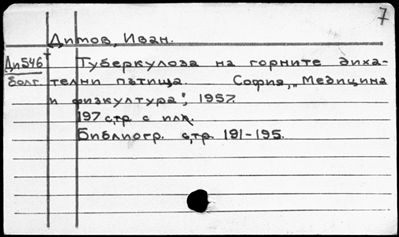 7
Димов, Иван.
Дп546 Туберкулоза на горните диха-
болг. телни пътища. София, „Медицина
и физкултура“, 1957.
197 стр. с илл.
Библиогр. стр. 191-195.